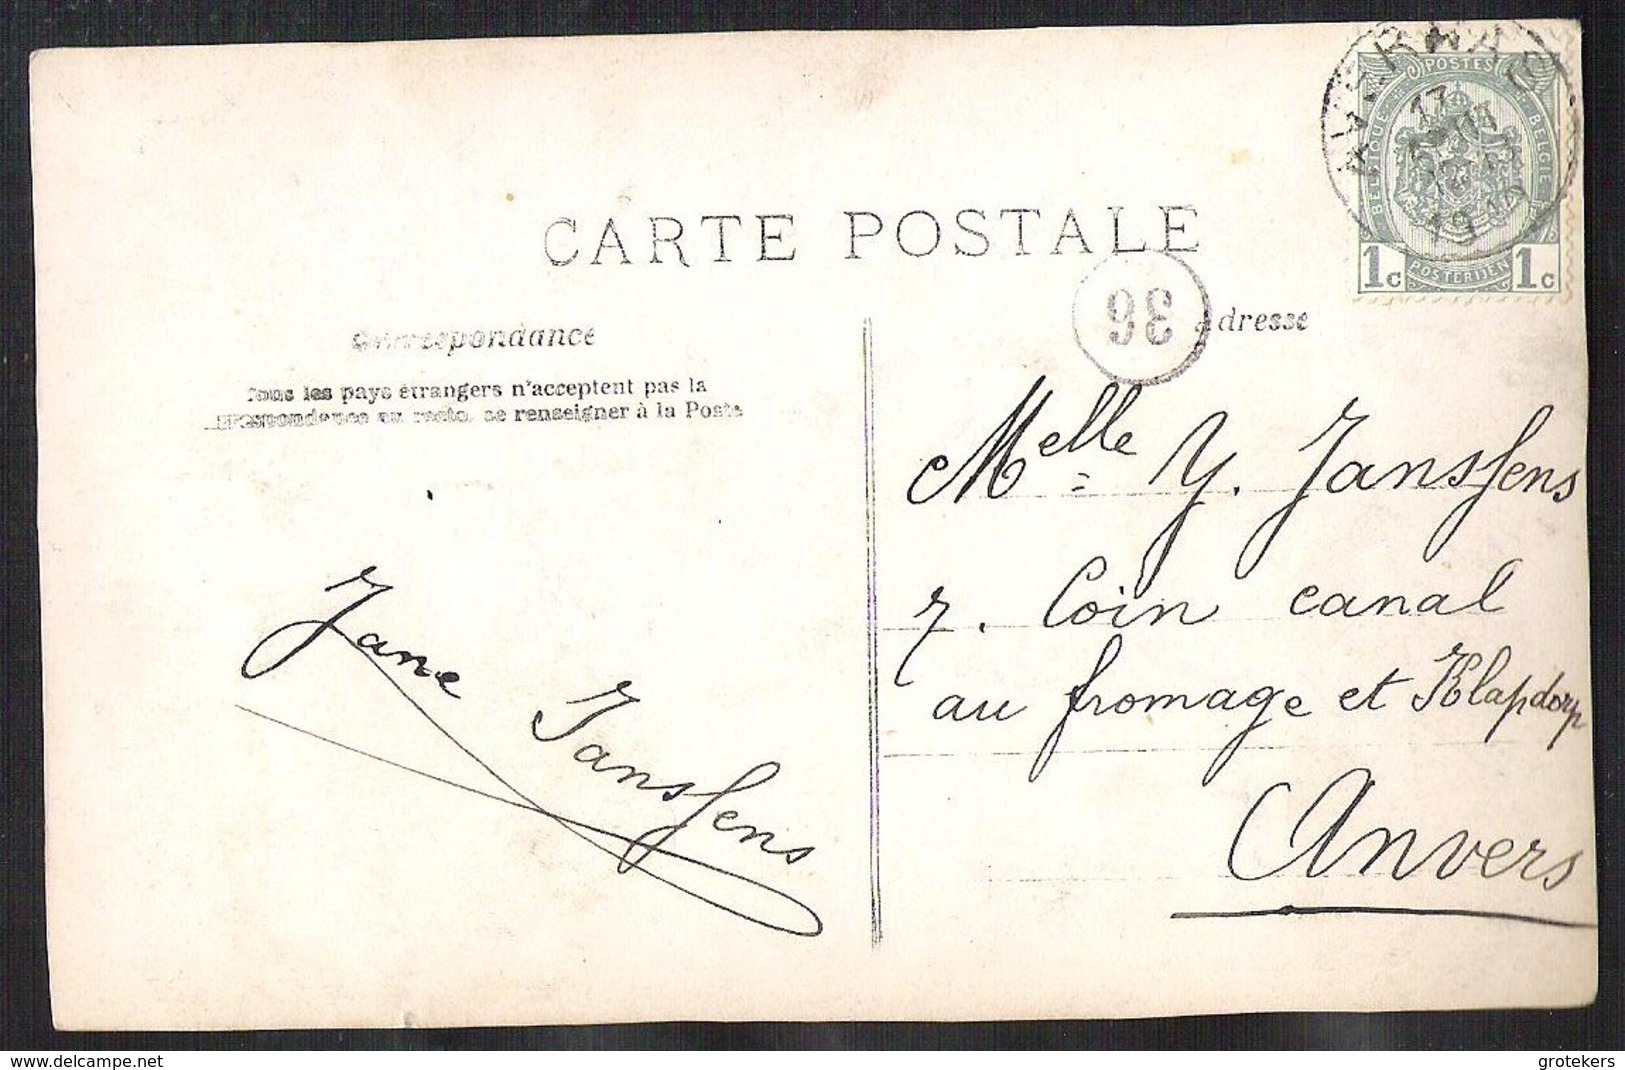 CARTE POSTALE
POSTES
BELGIQUE
BELGIË
POSTERIJEN
1c
1c
17
12-13
1910
36
Correspondance
Adresse
Tous les pays étrangers n'acceptent pas la
correspondance au recto, se renseigner à la Poste
Melle Y. Janssens
7. Coin canal
au fromage et Klapdorp
Anvers
Jane Janssens
delcampe.net
grotekers